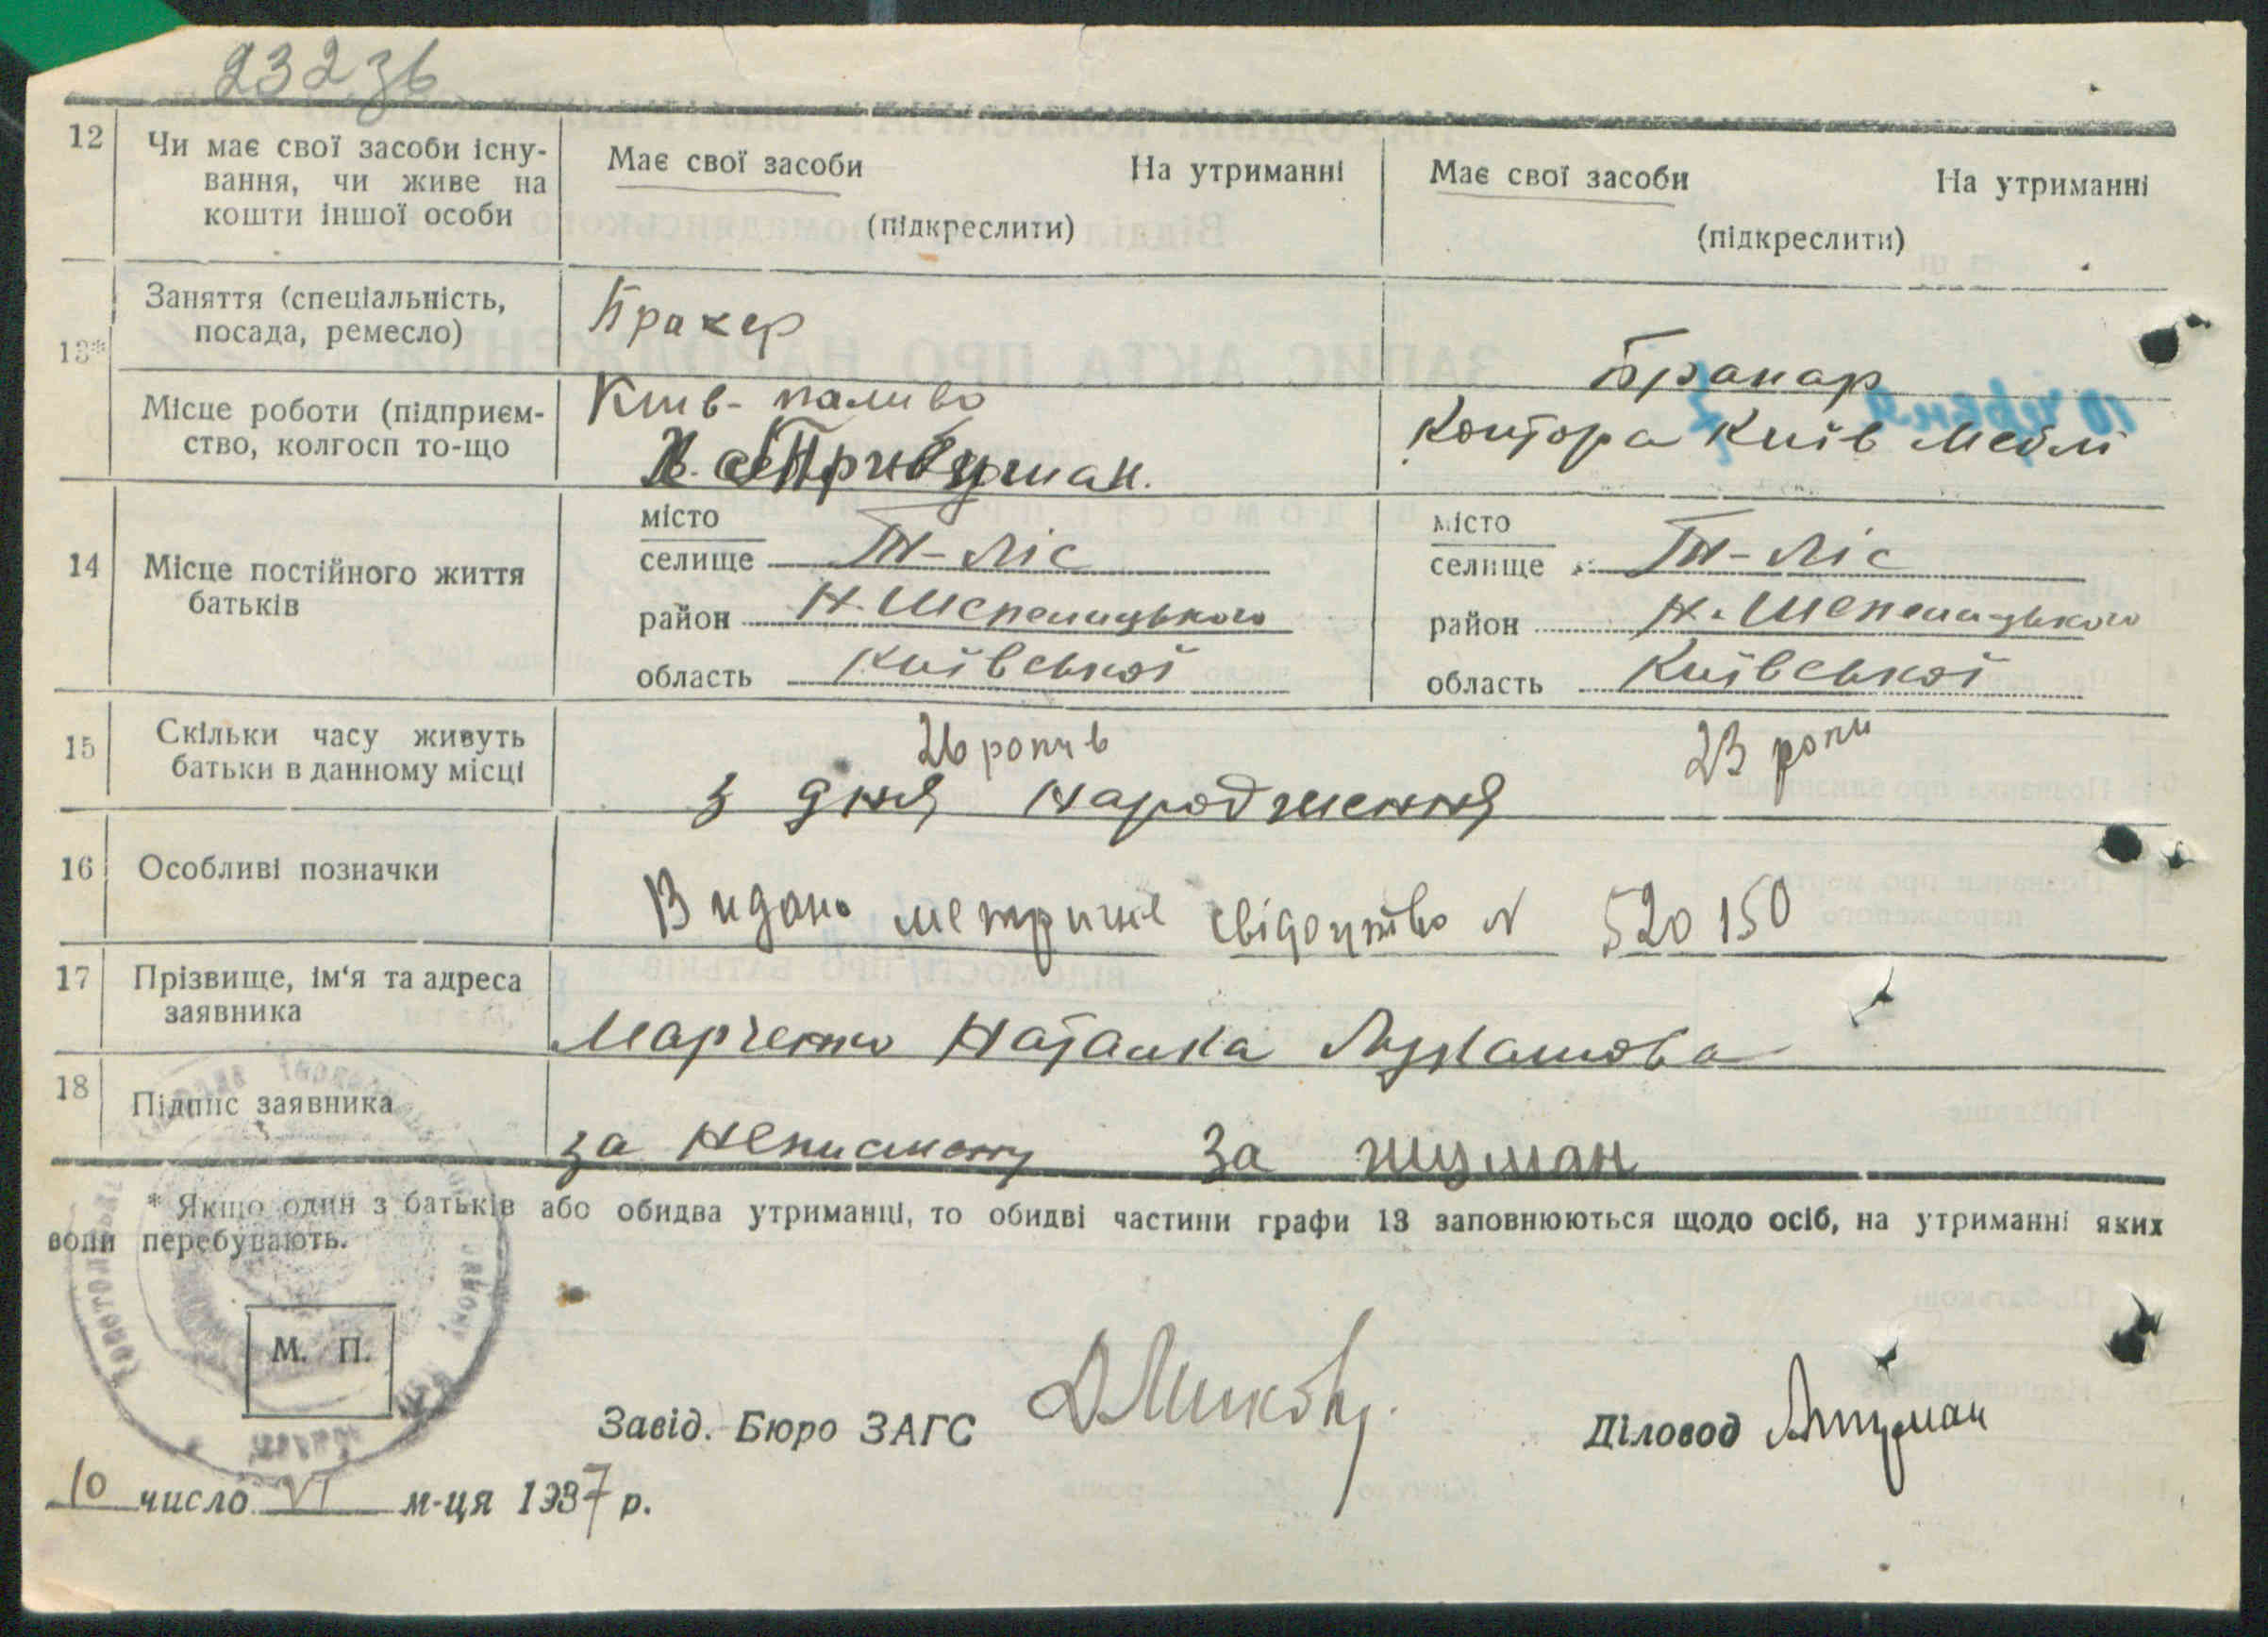 232 зв
12 Чи має свої засоби існу-
вання, чи живе на
кошти іншої особи
Має свої засоби На утриманні
(підкреслити)
Має свої засоби На утриманні
(підкреслити)
13*
Заняття (спеціальність,
посада, ремесло)
Бракер
Бракар
Місце роботи (підприєм-
ство, колгосп то-що
Київ-паливо
Контора Київ Меблі
14 Місце постійного життя
батьків
місто
селище Т-Ліс
район Н.Шепелицького
область Київської
місто
селище Т-Ліс
район Н.Шепелицького
область Київської
15 Скільки часу живуть
батьки в данному місці
26 років
23 роки
з дня народження
16 Особливі позначки
Видано метричне свідоцтво N 520150
17 Прізвище, ім‘я та адреса
заявника
Марченко Наталка Лукашова
18 Підпис заявника
за неписьмену За
* Якщо один з батьків або обидва утриманці, то обидві частини графи 13 заповнюються щодо осіб, на утриманні яких
вони перебувають.
М. П.
Завід. Бюро ЗАГС
Діловод
10 число VI м-ця 1937 р.